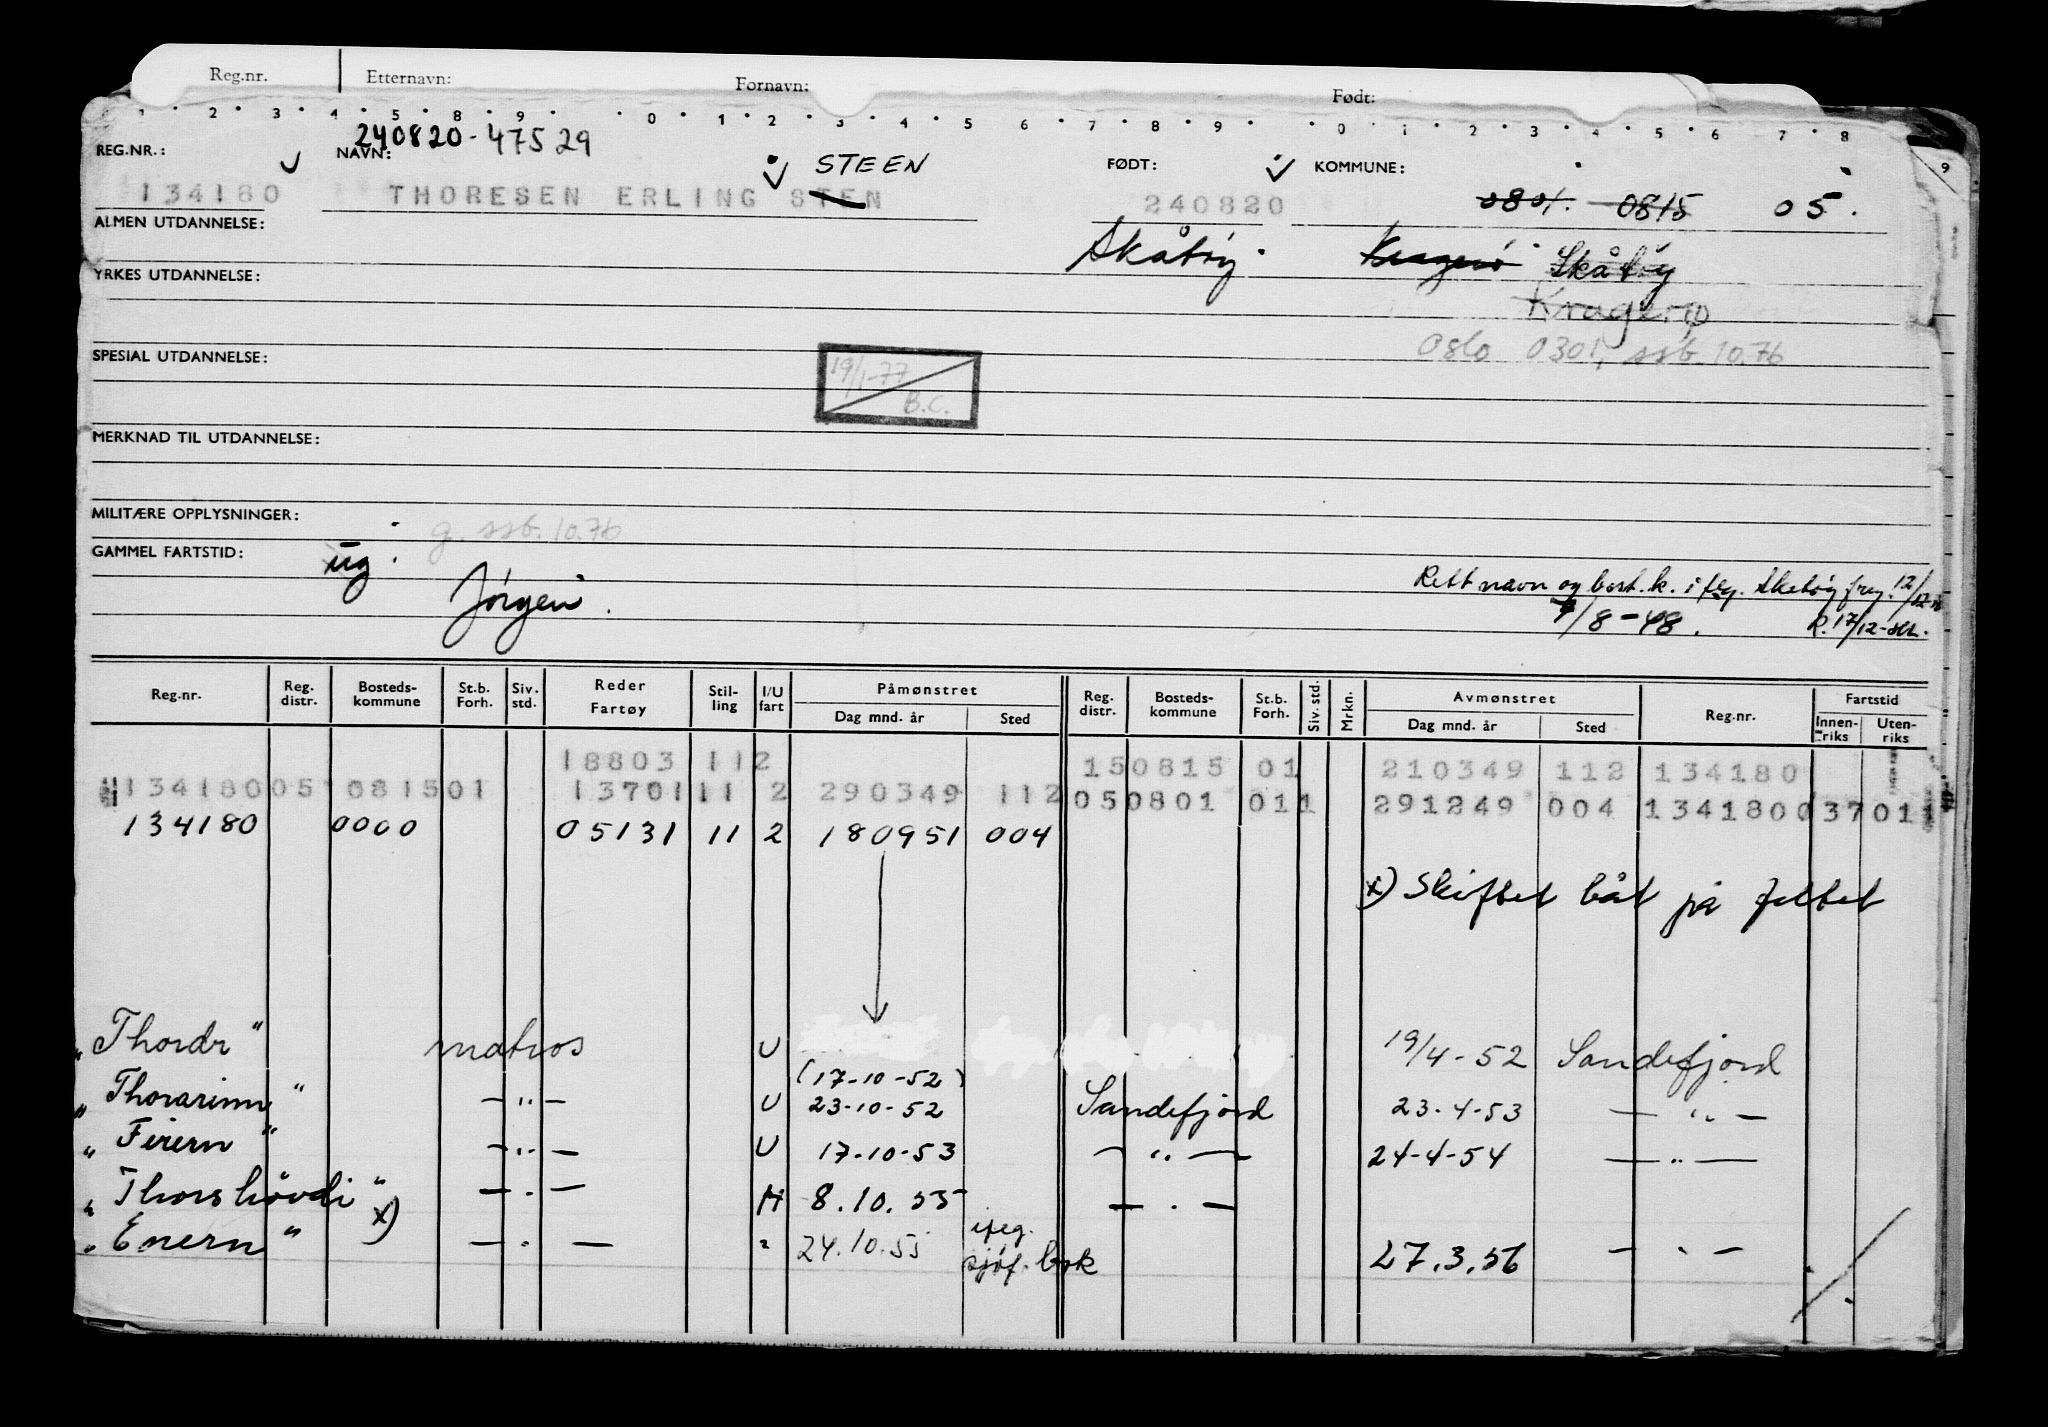 Reg.nr. Etternavn: Fornavn: Født:
1 2 3 4 5 8 9 0 1 2 3 4 5 6 7 8 9 0 1 2 3 4 5 6 7 8 9
240820-47529
REG.NR.: NAVN: STEEN FØDT: KOMMUNE:
134180 THORESEN ERLING STEN 240820 0801. 0815 05.
ALMEN UTDANNELSE: Skåtøy Kragerø Skåtøy
YRKES UTDANNELSE:
Kragerø
Oslo 0301, ssb. 10.76
SPESIAL UTDANNELSE:
19/1-77
B.C.
MERKNAD TIL UTDANNELSE:
MILITÆRE OPPLYSNINGER: g. ssb. 10.76
GAMMEL FARTSTID: ug.
Jørgen.
Rett navn og bost.k. i flg. Skåtøy freg. 12/12
7/8-48. R. 17/12
Reg.nr. Reg. distr. Bosteds-kommune St.b. Forh. Siv. std. Reder Fartøy Stil-ling I/U fart Påmønstret Reg. distr. Bosteds-kommune St.b. Forh. Siv. std. Mrkn. Avmønstret Reg.nr. Fartstid
Dag mnd. år Sted Dag mnd. år Sted Innen-riks Uten-riks
18803 112 150815 01 210349 112 134180
134180 05 081501 13701 11 2 290349 112 050801 011 291249 004 1341800 37011
134180 0000 05131 11 2 180951 004
x) Skiftet båt på feltet
"Thordr" matros U 19/4-52 Sandefjord
(17-10-52)
"Thorarinn" -"- U 23-10-52 Sandefjord 23.4-53 -"-
"Feiern" -"- U 17-10-53 -"- 24-4-54 -"-
"Thorshövdi" -"- 8.10.55 -"-
"Enern" x) -"- " 24.10.55 ifeg. sjøf. bok 27.3.56 -"-